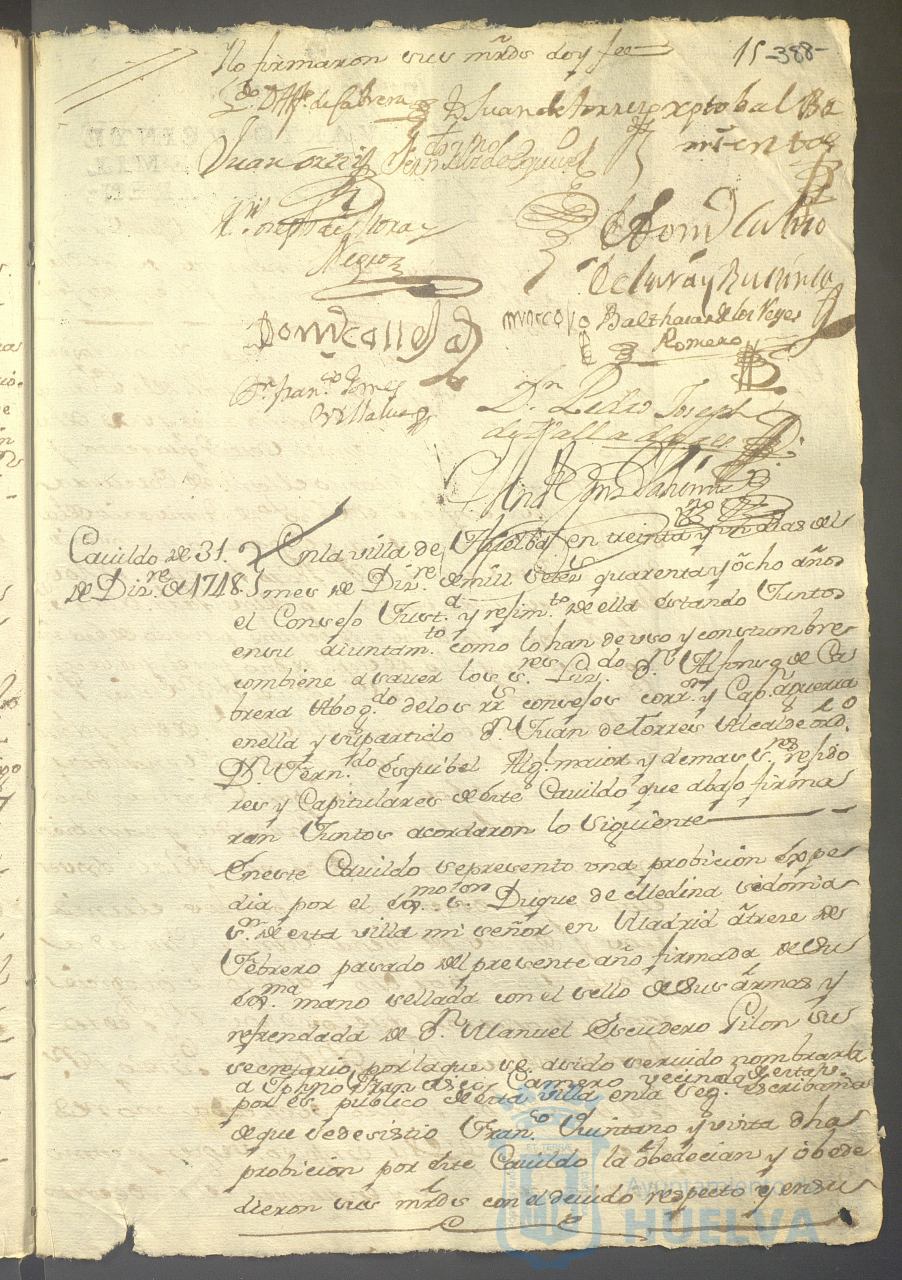 Yo firmaron sus mrds doy fee
15 -388-
Ldo D Alfo. de Cabrera D Juan de torres xptobal Ba
Juan ortiz Fern
Romero
Domo calleja marcolo Balthasar de los Reyes
Romero
Dn. franco Gomes
Villalva
Dn. Pedro Joseph
de Valladolid
Cavildo de 31.
de Dizre. de 1748.
En la villa de Huelba en treinta y un dias del
mes de Dizre. de mill setezs. quarenta y ocho años
el Consejo Justa. y rejimto. de ella estando Juntos
en su aiuntamto. como lo han de uso y constumbre
combiene a saver los sres. Lizdo. dn. Alfonso de Ca
brera Abogdo. de los rs. consejos corror. y Capn. aguerra
en ella y su partido dn. Juan de Torres Alcalde ordo.
Dn. Ferndo. Esquibel Algl. maior y demas sres. rejido
res y Capitulares de este Cavildo que abajo firma
ran Juntos acordaron lo siguiente
En este Cavildo se presento una probicion Expe
dia por el Exmo. sor. Duque de Medina sidonia
sr. de esta villa mi señor en Madrid a trese de
Febrero pasado del presente año firmada de su
Exma. mano sellada con el sello de sus armas y
refrendada de dn. Manuel Escudero Pilon su
secretario por la que se a sido servido nombrar
a Tphno Francisco Camero vecino de esta va.
por es. publico de esta villa en la seg. Escribania
de que se desistio Franco. Quintano y vista dha
probicion por este Cavildo la obedecian y obede
dieron sus mrds con el devido respecto y en su
Ayuntamiento
HUELVA